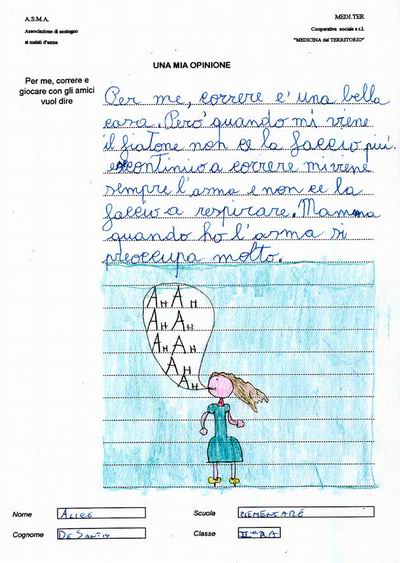 A.S.M.A.
Associazione di sostegno
ai malati d'asma
MEDI.TER
Cooperativa sociale s.r.l.
"MEDICINA del TERRITORIO"
UNA MIA OPINIONE
Per me, correre e
giocare con gli amici
vuol dire
Per me, correre e' una bella
cosa. Pero' quando mi viene
il fiatone non ce la faccio piú.
e continuo a correre mi viene
sempre l'asma e non ce la
faccio a respirare. Mamma
quando ho l'asma si
preoccupa molto.
AH AH
AH AH
AH AH
AH
AH
Nome ALICE
Scuola ELEMENTARE
Cognome DE SANTIS
Classe II